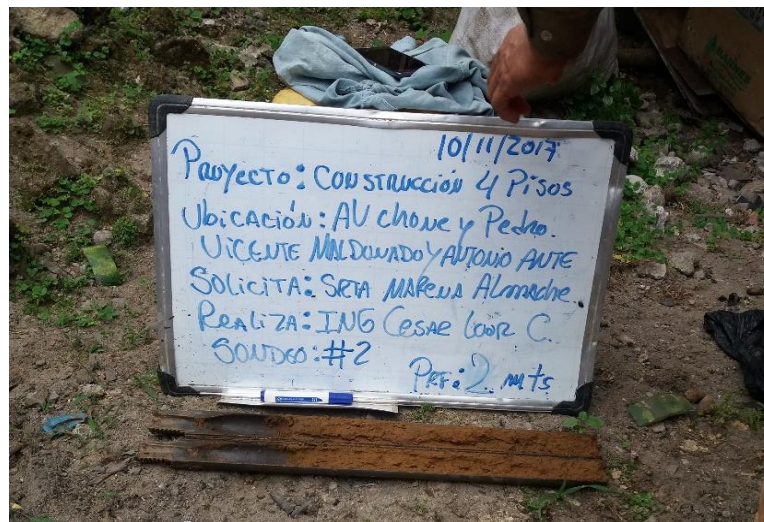 10/11/2017
PROYECTO: CONSTRUCCIÓN 4 PISOS
UbicACIÓN: AV chone y Pedro.
VICENTE MALDONADO Y ANTONIO ANTE
SOLICITA: SRTA
REALIZA: ING CESAR LOOR C.
SONDEO: #2
PRF: 2 mts